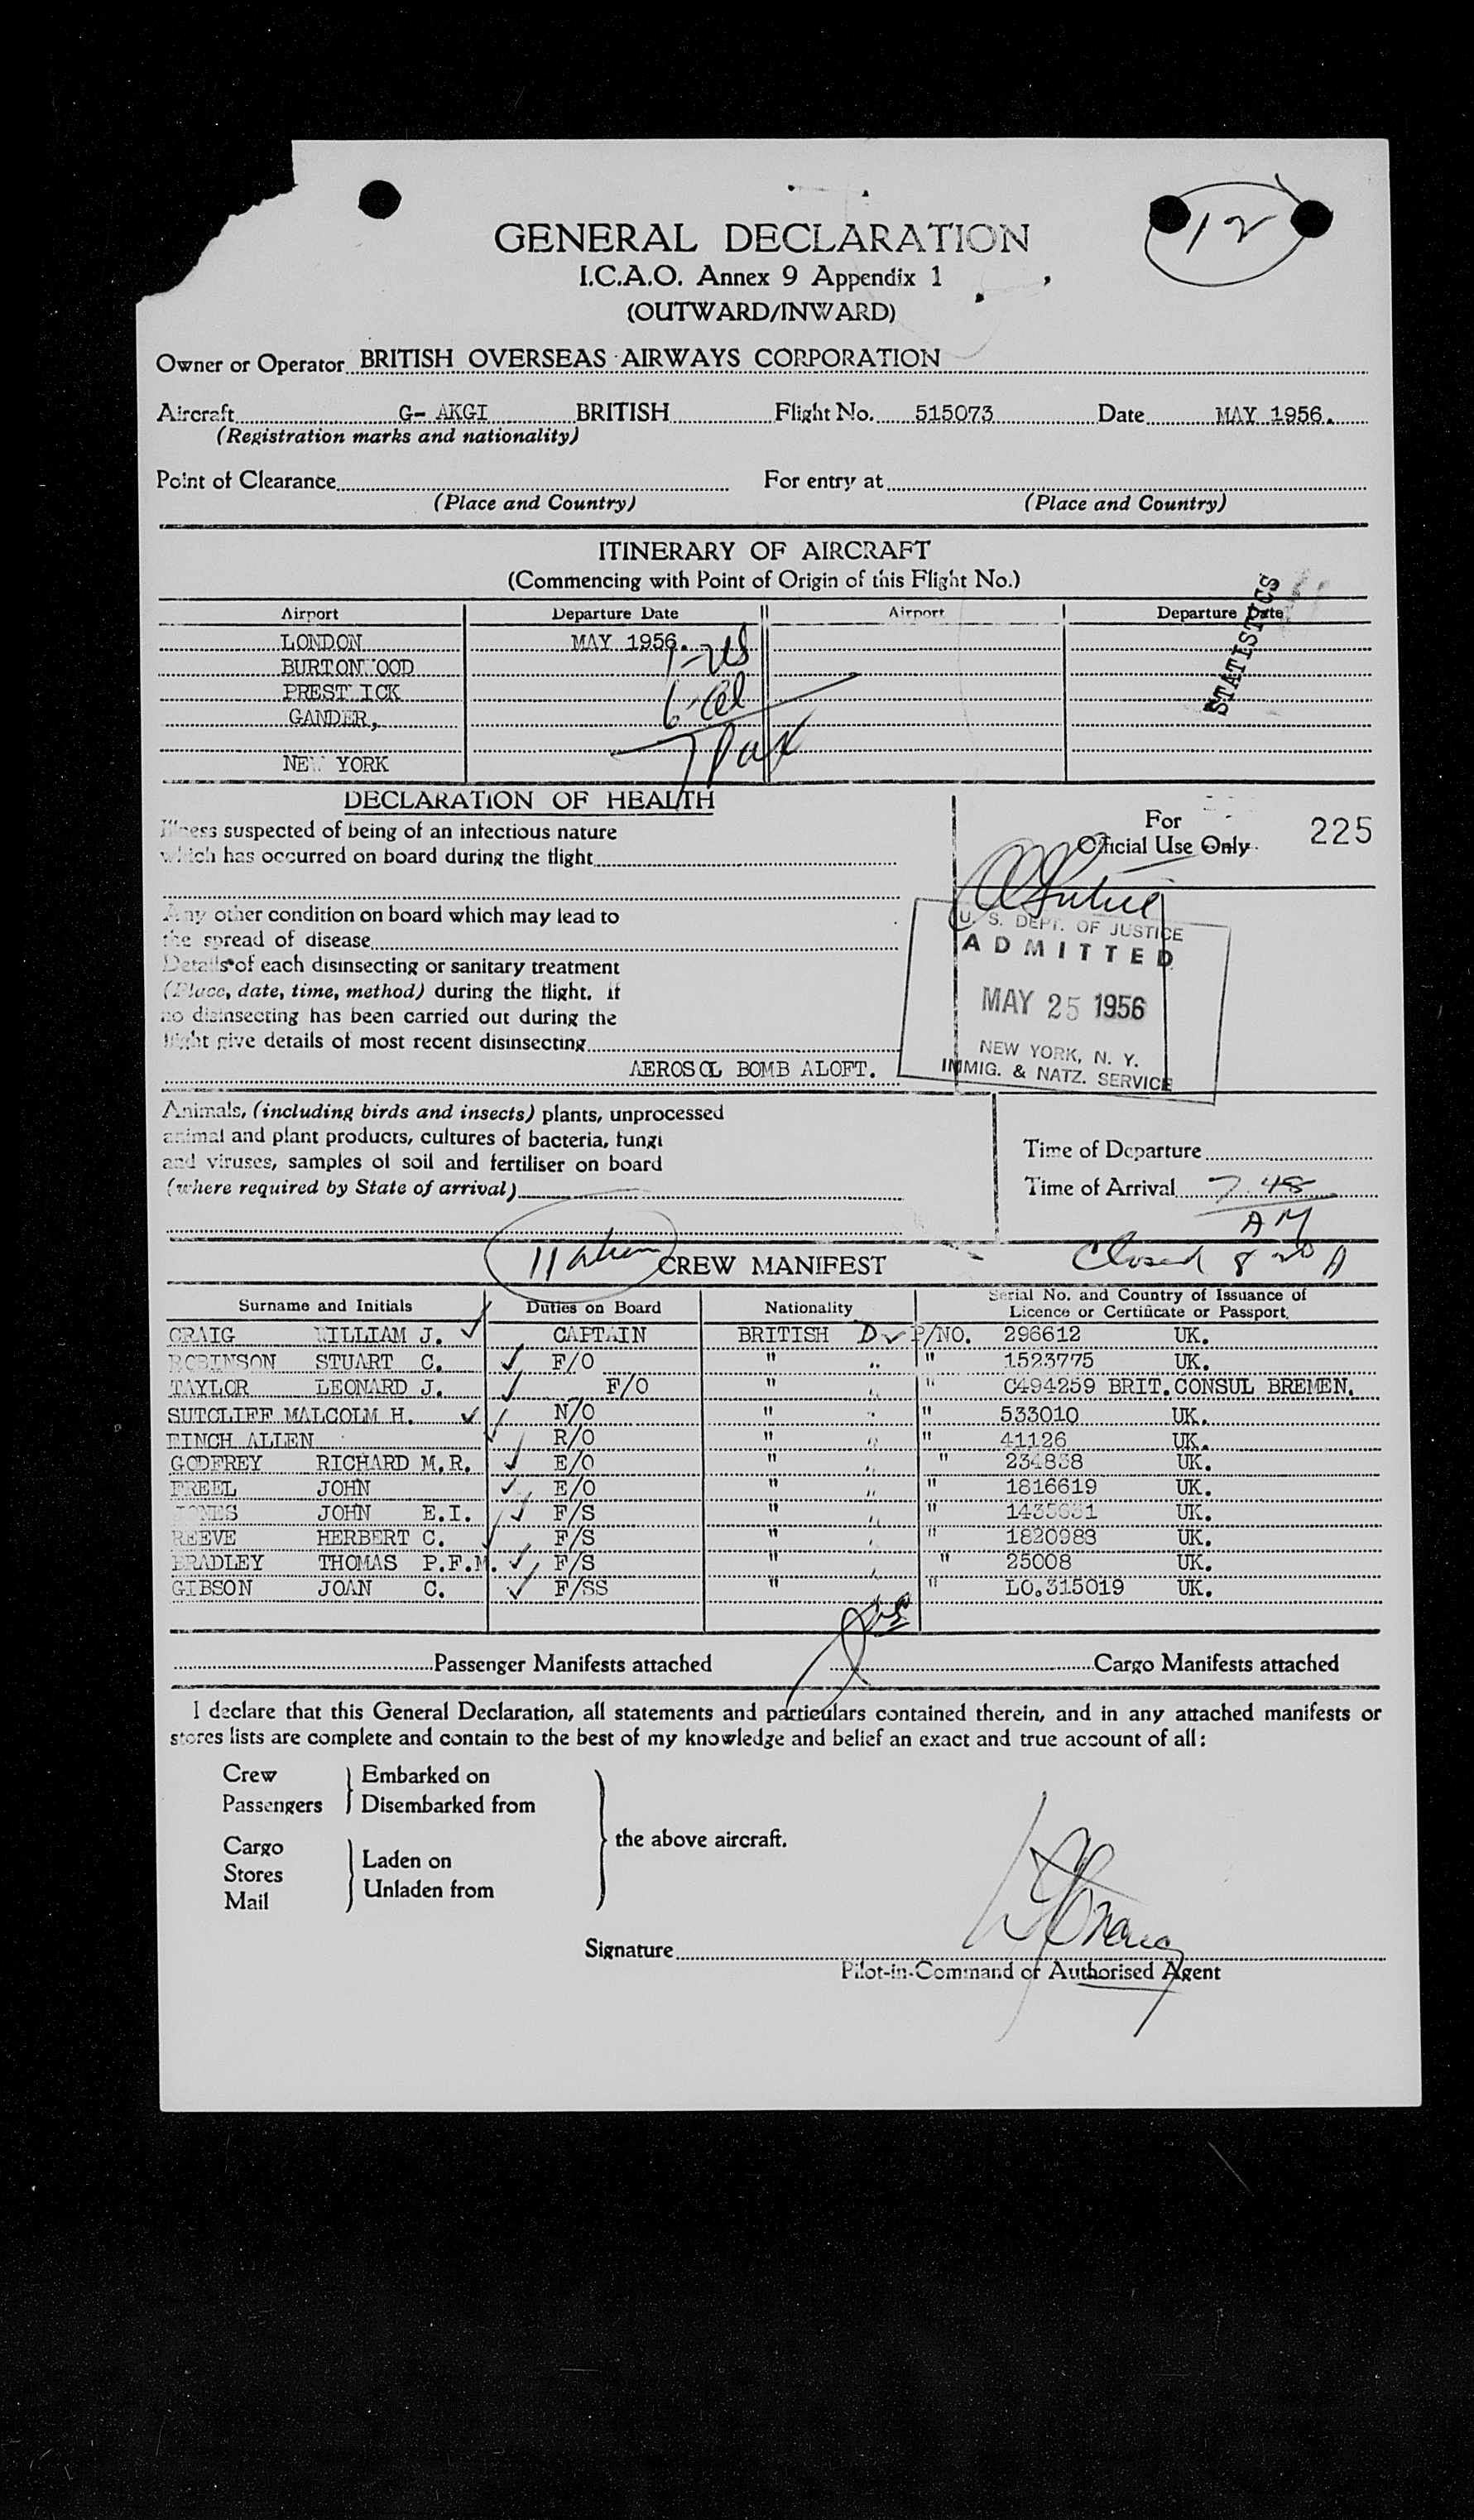 12
GENERAL DECLARATION
I.C.A.O. Annex 9 Appendix 1
(OUTWARD/INWARD)
Owner or Operator BRITISH OVERSEAS AIRWAYS CORPORATION
Aircraft G- AKGI BRITISH Flight No. 515073 Date MAY 1956.
(Registration marks and nationality)
Point of Clearance For entry at
(Place and Country) (Place and Country)
ITINERARY OF AIRCRAFT
(Commencing with Point of Origin of this Flight No.)
STATISTICS
Airport Departure Date Airport Departure Date
LONDON MAY 1956. 1-US
BURTON OOD
PREST ICK 6-
GANDER,
7 Pax
NEW YORK
DECLARATION OF HEALTH
For
Official Use Only 225
Illness suspected of being of an infectious nature
which has occurred on board during the flight
Any other condition on board which may lead to
the spread of disease
Details of each disinsecting or sanitary treatment
(Place, date, time, method) during the flight. If
no disinsecting has been carried out during the
flight give details of most recent disinsecting
AEROSOL BOMB ALOFT.
U. S. DEPT. OF JUSTICE
ADMITTED
MAY 25 1956
NEW YORK, N. Y.
IMMIG. & NATZ. SERVICE
Animals, (including birds and insects) plants, unprocessed
animal and plant products, cultures of bacteria, fungi
and viruses, samples of soil and fertiliser on board
(where required by State of arrival)
Time of Departure
Time of Arrival 7.48
AM
11 CREW MANIFEST Closed 8 20 A
Surname and Initials Duties on Board Nationality Serial No. and Country of Issuance of
Licence or Certificate or Passport.
CRAIG WILLIAM J. CAPTAIN BRITISH D P/NO. 296612 UK.
ROBINSON STUART C. F/O " " " 1523775 UK.
TAYLOR LEONARD J. F/O " " " C494259 BRIT.CONSUL BREMEN.
SUTCLIFF MALCOLM H. N/O " " " 533010 UK.
FINCH ALLEN R/O " " " 41126 UK.
GODFREY RICHARD M.R. E/O " " " 234838 UK.
FREEL JOHN E/O " " " 1816619 UK.
JONES JOHN E.I. F/S " " " 1435631 UK.
REEVE HERBERT C. F/S " " " 1820983 UK.
BRADLEY THOMAS P.F.M. F/S " " " 25008 UK.
GIBSON JOAN C. F/SS " " LO.315019 UK.
Passenger Manifests attached Cargo Manifests attached
I declare that this General Declaration, all statements and particulars contained therein, and in any attached manifests or
stores lists are complete and contain to the best of my knowledge and belief an exact and true account of all:
Crew Embarked on
Passengers Disembarked from
the above aircraft.
Cargo
Stores Laden on
Mail Unladen from
Signature
Pilot-in-Command or Authorised Agent